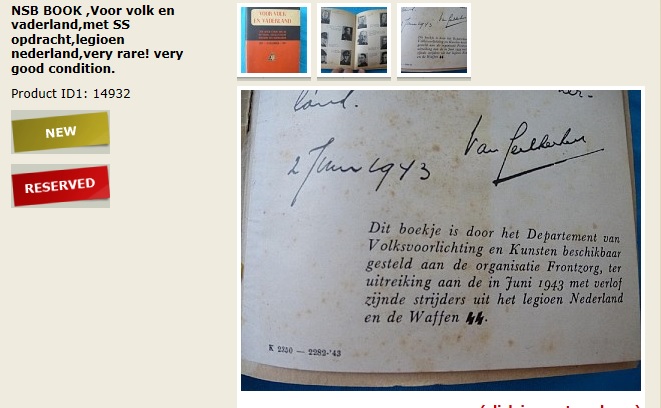 NSB BOOK ,Voor volk en
vaderland,met SS
opdracht,legioen
nederland,very rare! very
good condition.
Product ID1: 14932
NEW
RESERVED
VOOR VOLK
EN VADERLAND
land.
2 Juni 1943
Van Geelkerken
Dit boekje is door het Departement van
Volksvoorlichting en Kunsten beschikbaar
gesteld aan de organisatie Frontzorg, ter
uitreiking aan de in Juni 1943 met verlof
zijnde strijders uit het legioen Nederland
en de Waffen SS.
K 2350 — 2282-'43